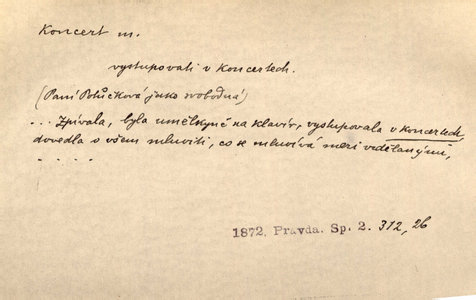 Koncert m.
vystupovati v koncertech.
(Paní Potůčková jako svobodná)
... Zpívala, byla umělkyně na klavír, vystupovala v koncertech,
dovedla o všem mluviti, co se mluvívá mezi vzdělanými,
. . . . .
1872, Pravda. Sp. 2. 312, 26